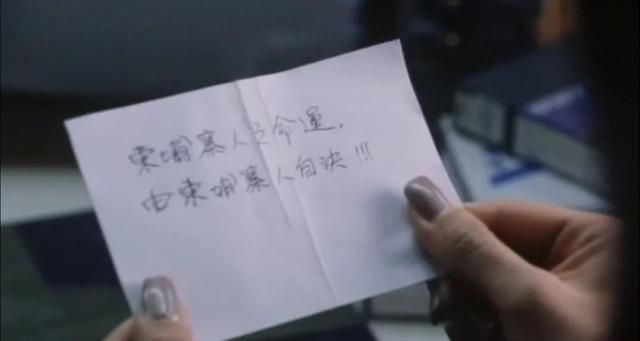 柬埔寨人之命運，
由柬埔寨人自決!!!